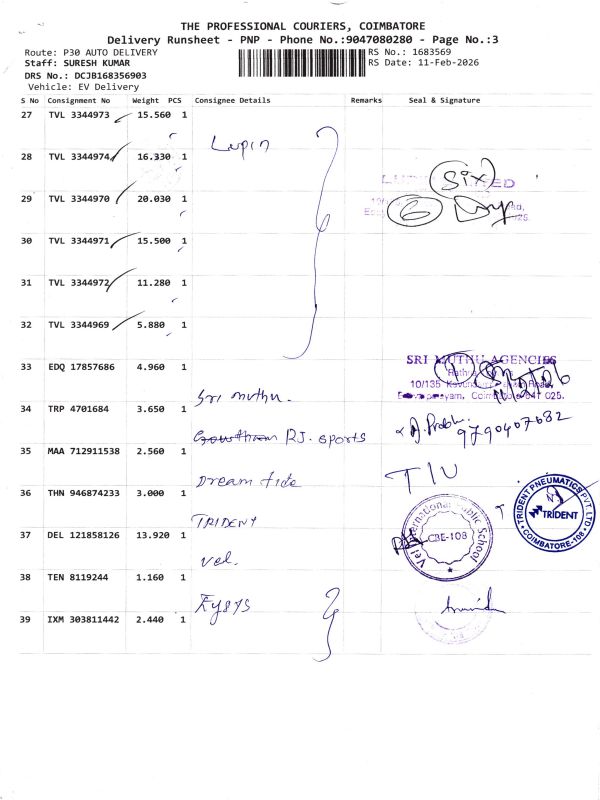 THE PROFESSIONAL COURIERS, COIMBATORE
Delivery Runsheet - PNP - Phone No.:9047080280 - Page No.:3
Route: P30 AUTO DELIVERY RS No.: 1683569
Staff: SURESH KUMAR RS Date: 11-Feb-2026
DRS No.: DCJB168356903
Vehicle: EV Delivery
S No Consignment No Weight PCS Consignee Details Remarks Seal & Signature
27 TVL 3344973 15.560 1
Lupin
28 TVL 3344974 16.330 1
Six
29 TVL 3344970 20.030 1
6
30 TVL 3344971 15.500 1
31 TVL 3344972 11.280 1
32 TVL 3344969 5.880 1
SRI MUTHU AGENCIES
33 EDQ 17857686 4.960 1
10/135
Sri muthu.
34 TRP 4701684 3.650 1
9790407682
Gowtham RJ. sports
35 MAA 712911538 2.560 1
Dream tide
36 THN 946874233 3.000 1
TRIDENT PNEUMATICS PVT. LTD
TRIDENT
COIMBATORE-108
TRIDENT
37 DEL 121858126 13.920 1
Vel International Public School
CBE-108
Vel.
38 TEN 8119244 1.160 1
39 IXM 303811442 2.440 1